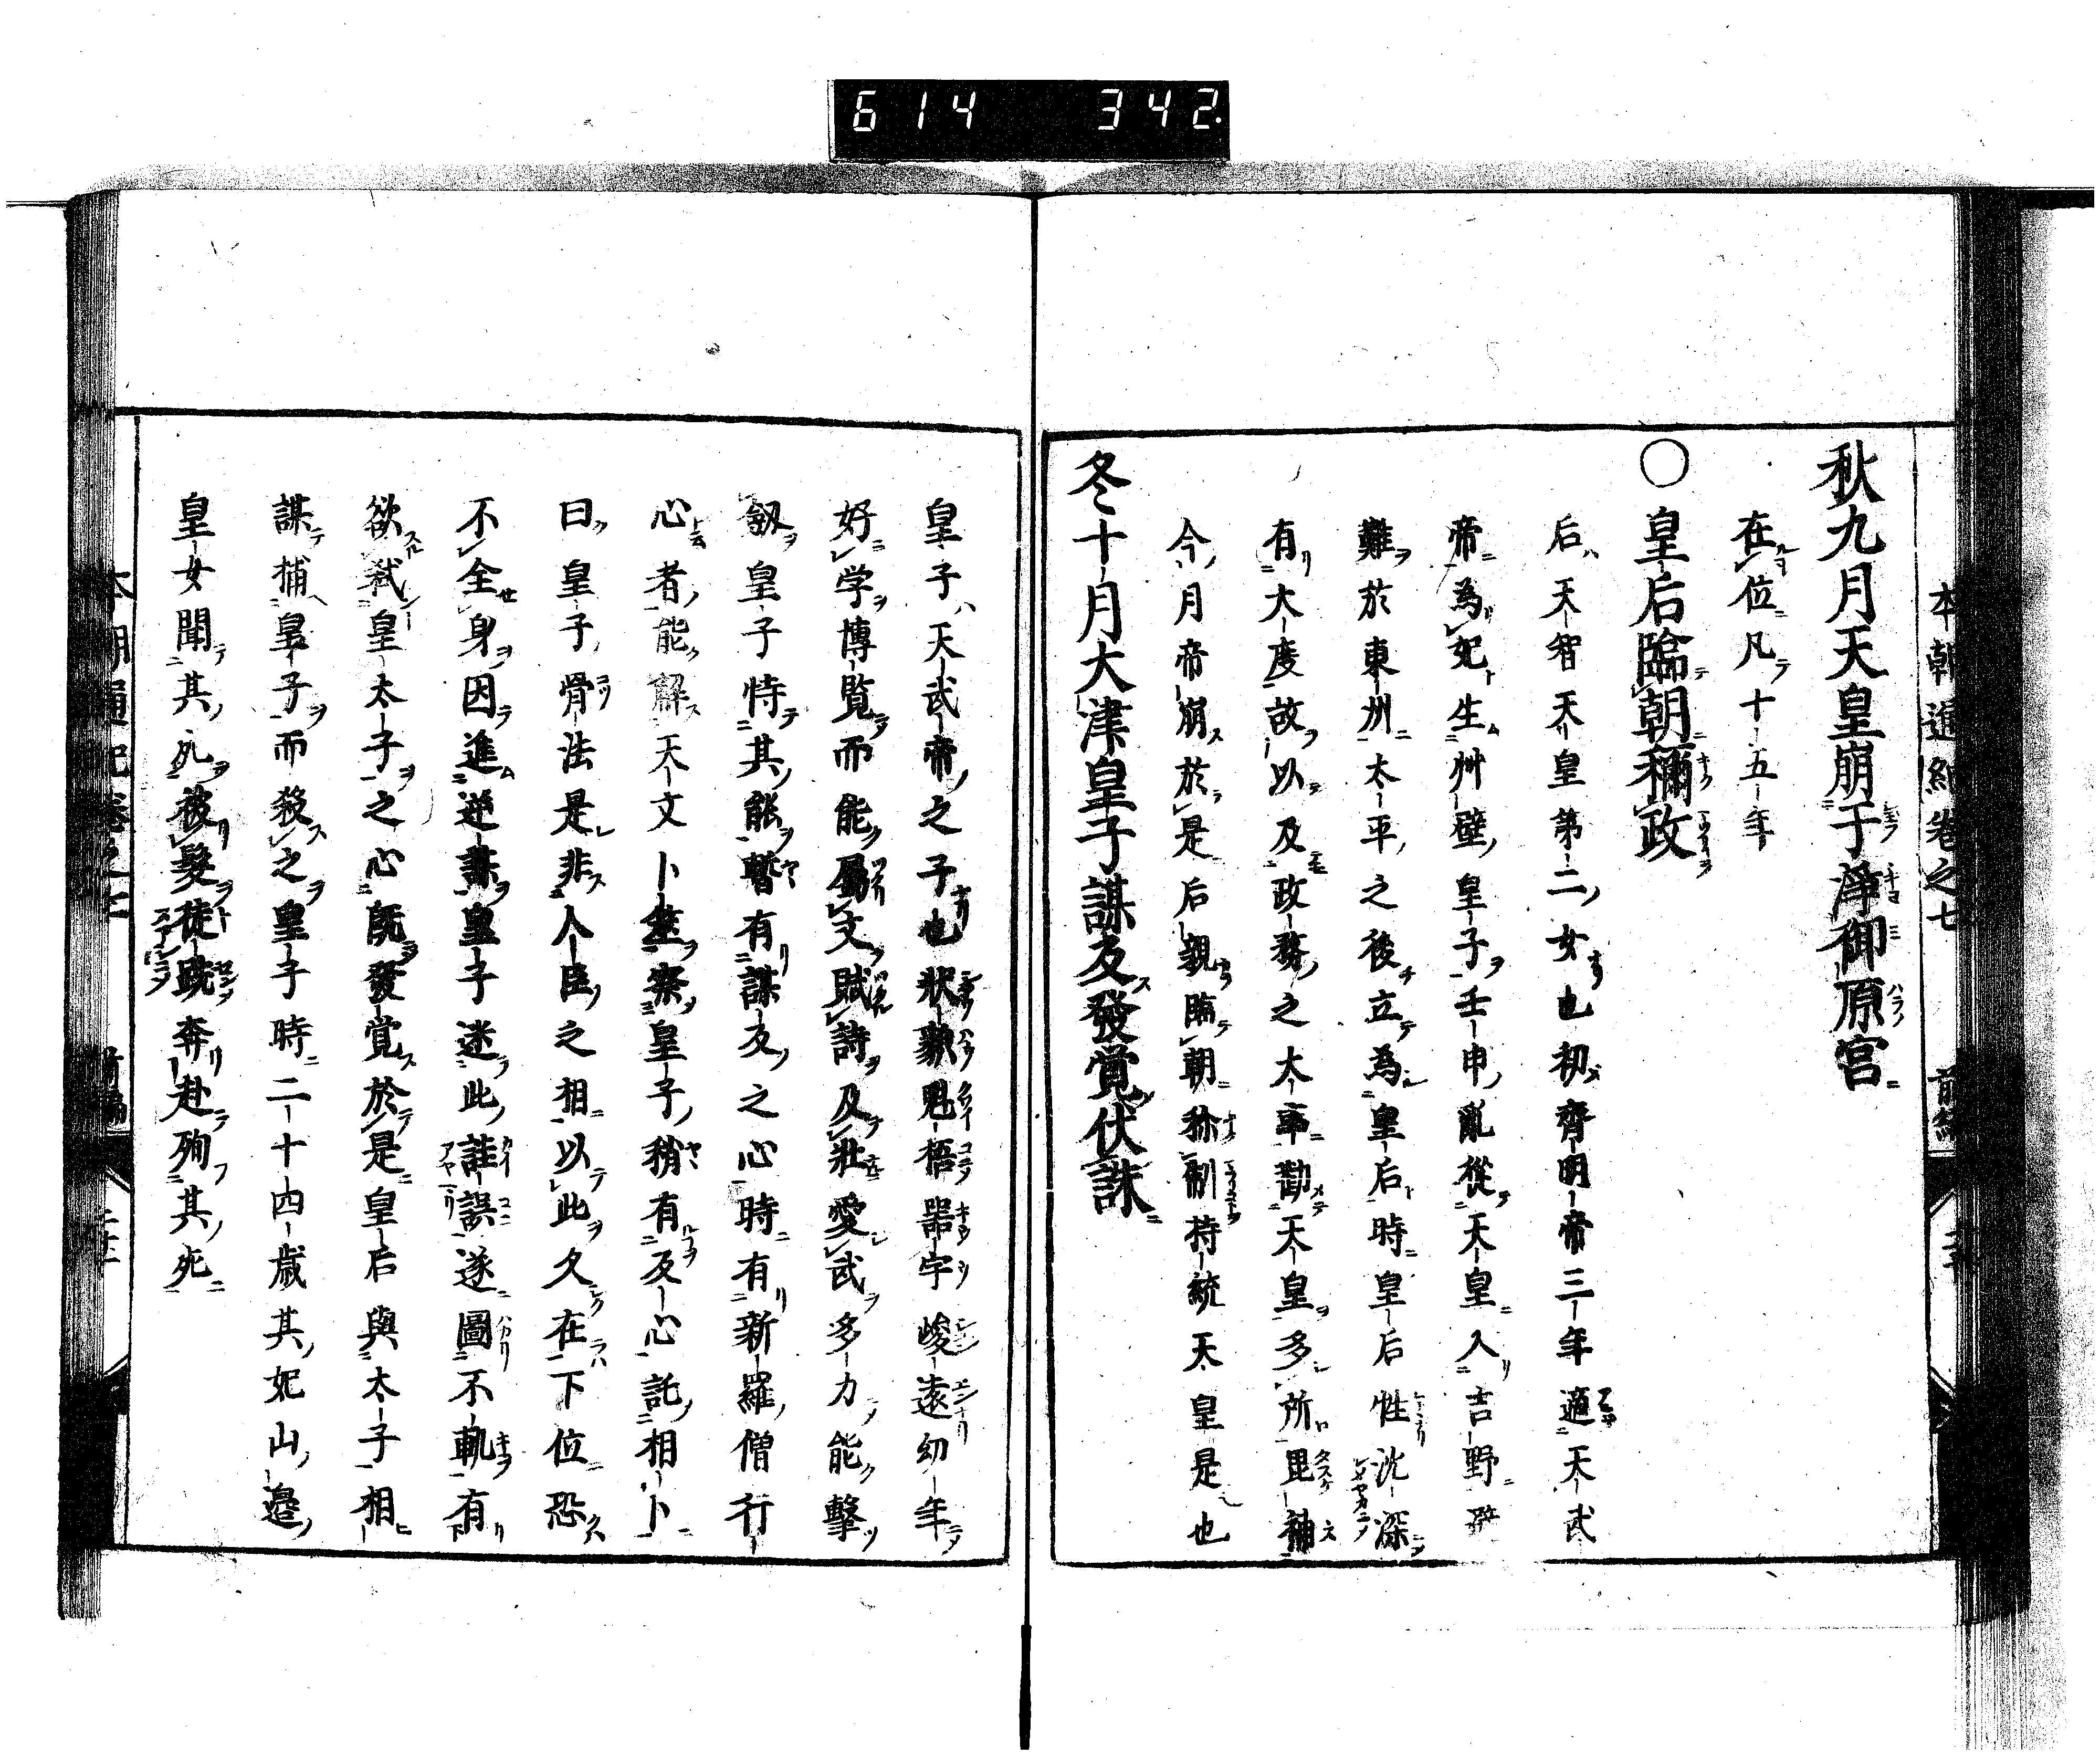 614 342.
本朝通紀卷之七 前編
秋九月天皇崩于淨御原宮
在位凡十五年
○皇后臨朝稱政
后天智天皇第二女也初齊明帝三年適天武
帝為妃生艸壁皇子壬申亂從天皇入吉野避
難於東州太平之後立為皇后時皇后性沈深
有大度故以及政務之大事勸天皇多所毘補
今月帝崩於是后親臨朝稱制持統天皇是也
冬十月大津皇子謀反發覺伏誅
皇子天武帝之子也狀貌魁梧器宇峻遠幼年
好学博覧而能屬文賦詩及壯愛武多力能擊
劔皇子恃其能暫有謀反之心時有新羅僧行
心者能解天文卜筮察皇子稍有反心託相卜
曰皇子骨法是非人臣之相以此久在下位恐
不全身因進逆謀皇子迷此詿誤遂圖不軌有
欲弑皇太子之心既發覚於是皇后與太子相
謀捕皇子而殺之皇子時二十四歳其妃山邉
皇女聞其死被髮徒跣奔赴殉其死
本朝通紀卷之七 前編